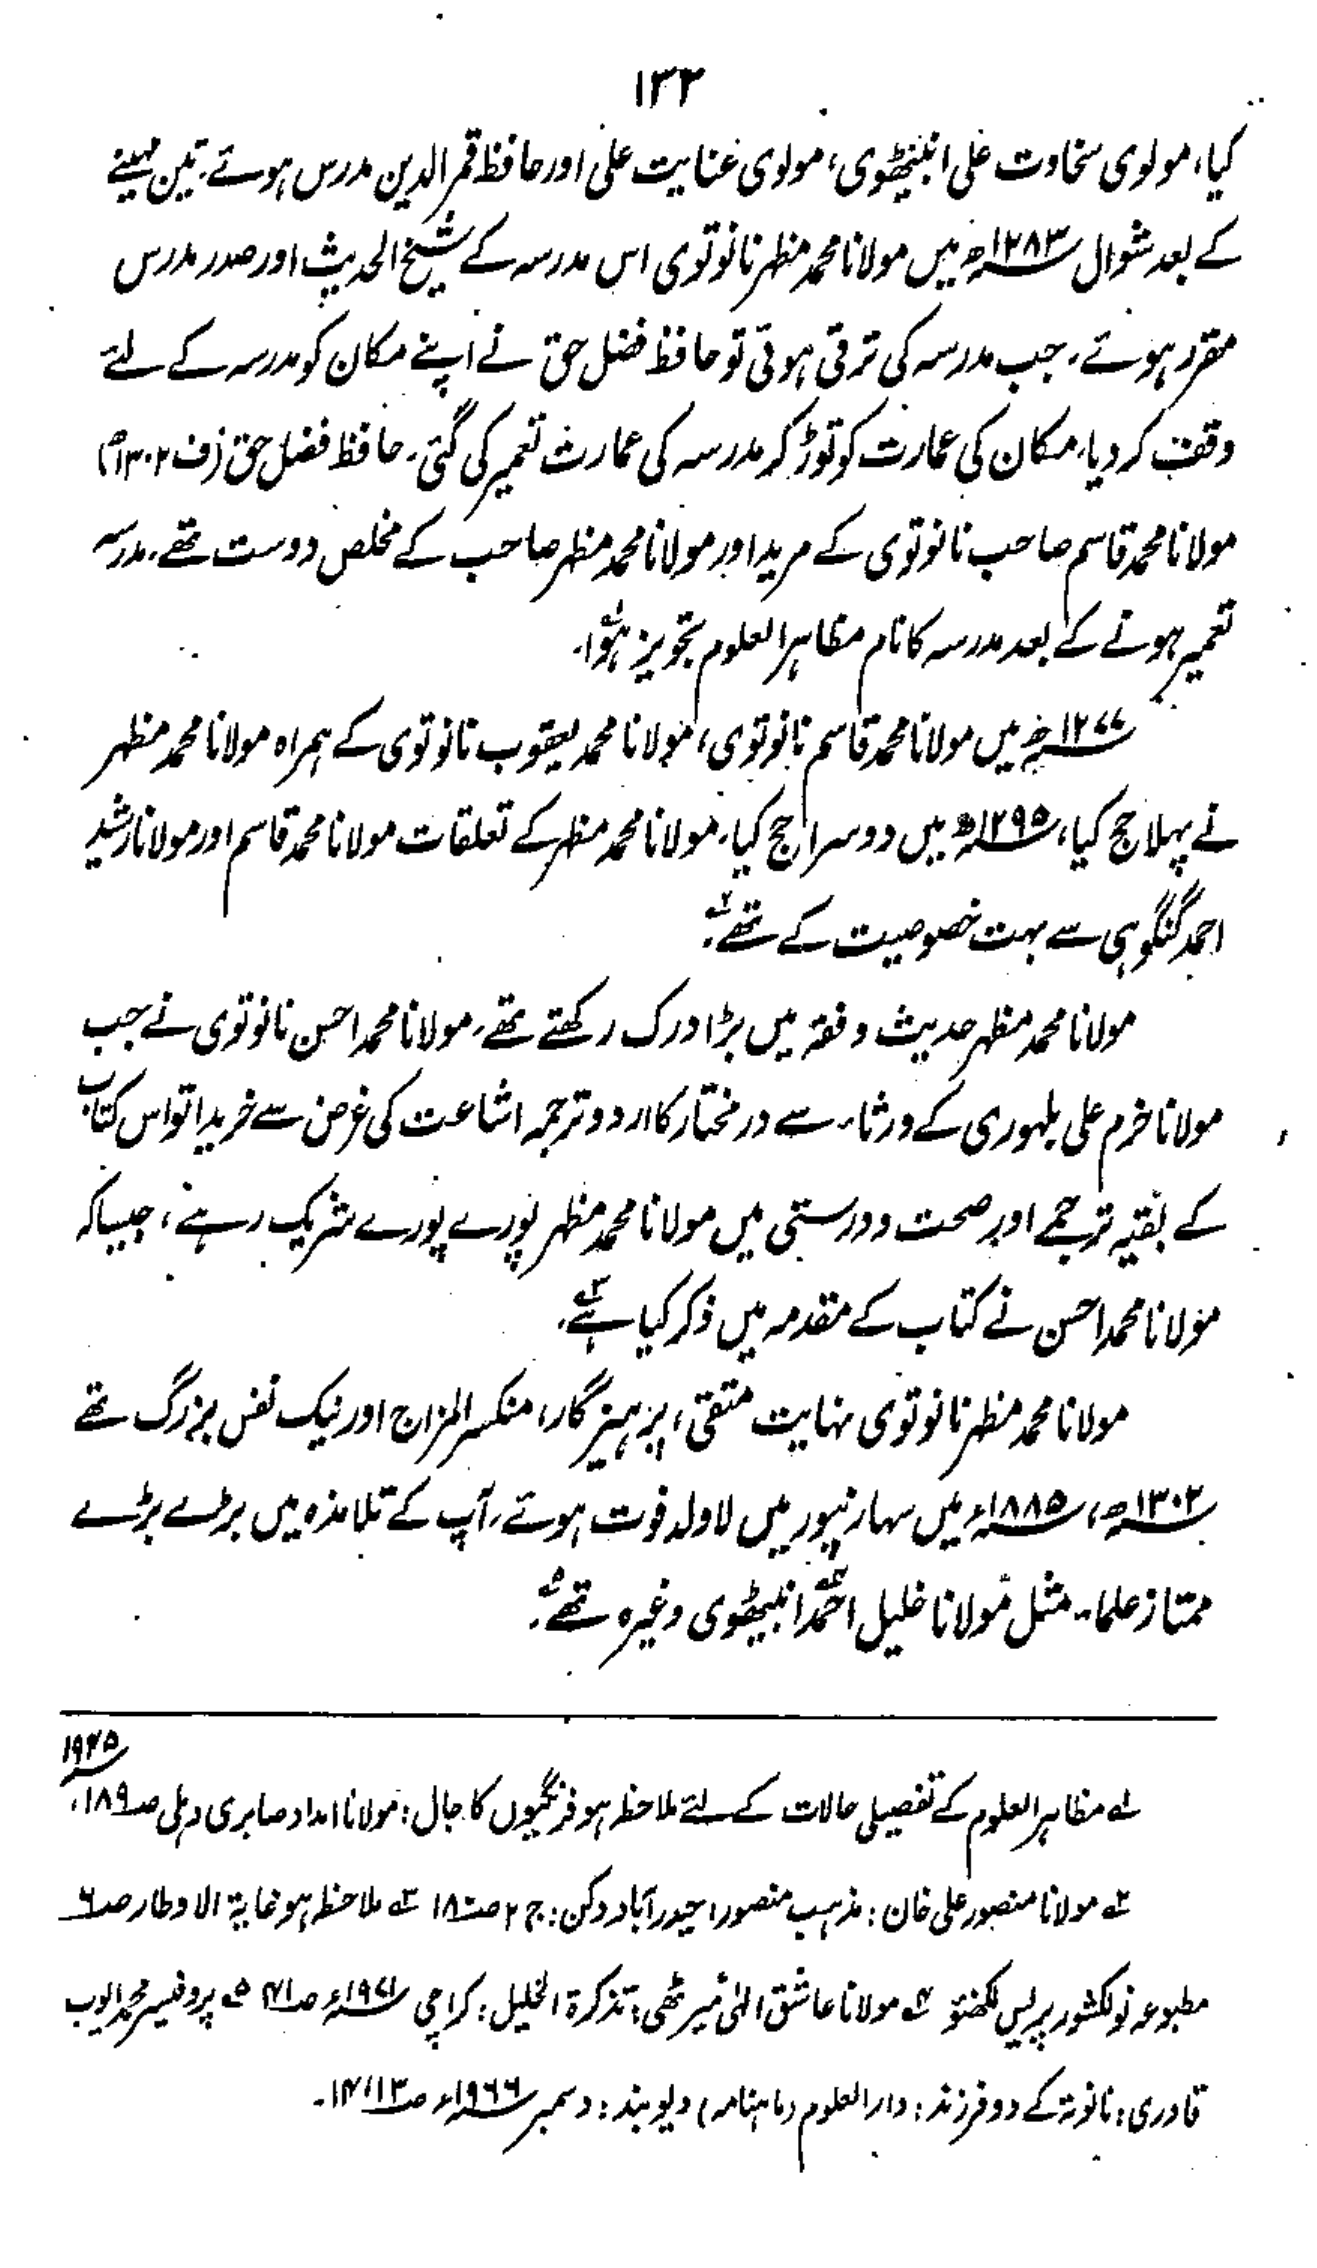 ۱۳۳
کیا، مولوی سخاوت علی انبیٹھوی، مولوی عنایت علی اور حافظ قمر الدین مدرس ہوئے، تین مہینے
کے بعد شوال ۱۲۸۳ھ میں مولانا محمد مظہر نانوتوی اس مدرسہ کے شیخ الحدیث اور صدر مدرس
مقرر ہوئے، جب مدرسہ کی ترقی ہوئی تو حافظ فضل حق نے اپنے مکان کو مدرسہ کے لئے
وقف کر دیا، مکان کی عمارت کو توڑ کر مدرسہ کی عمارت تعمیر کی گئی۔ حافظ فضل حق (ف ۱۳۰۲ھ)
مولانا محمد قاسم صاحب نانوتوی کے مرید اور مولانا محمد مظہر صاحب کے مخلص دوست تھے، مدرسہ
تعمیر ہونے کے بعد مدرسہ کا نام مظاہر العلوم تجویز ہوا۔
۱۲۷۷ھ میں مولانا محمد قاسم نانوتوی، مولانا محمد یعقوب نانوتوی کے ہمراہ مولانا محمد مظہر
نے پہلا حج کیا، ۱۲۹۵ھ میں دوسرا حج کیا، مولانا محمد مظہر کے تعلقات مولانا محمد قاسم اور مولانا رشید
احمد گنگوہی سے بہت خصوصیت کے تھے ۲؎۔
مولانا محمد مظہر حدیث و فقہ میں بڑا درک رکھتے تھے، مولانا محمد احسن نانوتوی نے جب
مولانا خرم علی بلہوری کے ورثاء سے در مختار کا اردو ترجمہ اشاعت کی غرض سے خریدا تو اس کتاب
کے بقیہ ترجمے اور صحت و درستی میں مولانا محمد مظہر پورے پورے شریک رہے، جیسا کہ
مولانا محمد احسن نے کتاب کے مقدمہ میں ذکر کیا ہے ۳؎۔
مولانا محمد مظہر نانوتوی نہایت متقی، پرہیز گار، منکسر المزاج اور نیک نفس بزرگ تھے
۱۳۰۲ھ، ۱۸۸۵ء میں سہارنپور میں لاولد فوت ہوئے، آپ کے تلامذہ میں بڑے بڑے
ممتاز علماء مثل مولانا خلیل احمد ۴؎ انبیٹھوی وغیرہ تھے ۵؎۔
۱؎ مظاہر العلوم کے تفصیلی حالات کے لئے ملاحظہ ہو فرنگیوں کا جال: مولانا امداد صابری دہلی صـ۱۸۹، ۱۹۴۵
۲؎ مولانا منصور علی خان: مذہب منصور، حیدرآباد دکن: ج ۲ صـ۱۸۰ ۳؎ ملاحظہ ہو غایۃ الاوطار صـ۶
مطبوعہ نولکشور پریس لکھنؤ ۴؎ مولانا عاشق الٰہی میرٹھی: تذکرۃ الخلیل: کراچی ۱۹۷۱ء صـ۴۱ ۵؎ پروفیسر محمد ایوب
قادری: نانوتہ کے دو فرزند: دارالعلوم (ماہنامہ) دیوبند: دسمبر ۱۹۶۶ء صـ۱۳، ۱۴۔